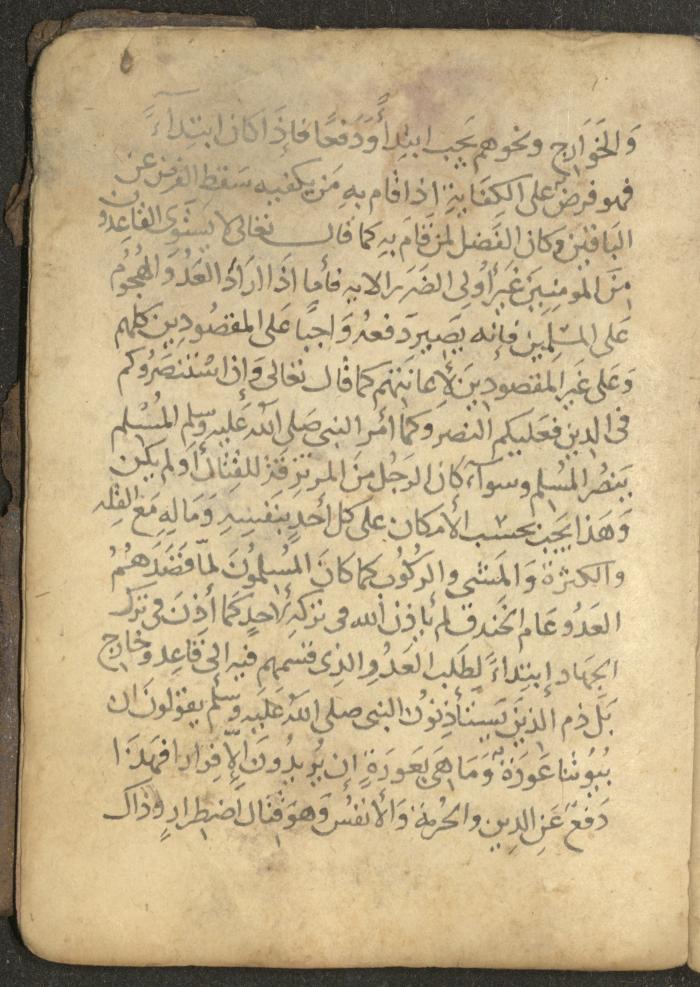 وَالخَوَارِج ونحوهم يَجِب ابتِداءً وَدَفعًا فإذَا كان ابتِدَاءً
فهو فرضٌ على الكِفَايةِ اذا قام بِهِ مَن يكفيه سَقَط الفرضُ عن
البَاقين وكان الفَضل لمن قَامَ بِهِ كما قال تعالى لا يَستَوِى القاعِدُون
مِنَ المومِنِينَ غيرُ أُولِى الضَرَرِ الايه فأما اذَا ارَادَ العَدُوّ الهُجُومُ
عَلى المسْلِمين فإنه يَصِير دَفعُه وَاجِبًا عَلى المقصُودِين كلهم
وَعَلى غَيرِ المقصودِينَ لإعانَتِهم كما قال تعالى وَإن اسْتَنصَرُوكم
فى الدِينِ فعَليكم النصر وكما أمَر النبى صَلى الله عَليه وسلم المُسْلم
بِنَصْر المُسْلِم وسوآء كان الرَجُل مِنَ المرتزِقَة للقِتال أو لم يَكن
وَهَذا يَجِب بحسَب الأمكان على كل أحَدٍ بنَفسِهِ وَمَالِهِ مَع القِله
والكثرة وَالمَشى والركُوب كما كانَ المُسلمُونَ لمّا قَصَدَهُمُ
العَدُو عَام الخَندق لم يأذن الله فى تركه لأحَدٍ كمَا أذنَ فى ترك
الجهاد إبتِدَاءً لِطَلب العَدُوِ الذِى قسمهم فيه الى قَاعِد وخارج
بَل ذم الذينَ يَستأذنونُ النبى صلى الله عَلَيه وسلم يقولونَ ان
بُيُوتنا عَورَة وَمَا هىَ بعَورَةٍ إن يُريدُونَ الاّ فِرارا فهَذَا
دَفعٌ عَنِ الدِينِ والحُرمَة وَالأنفُس وَهوَ قِتَال اضطِرارٍ وذاك